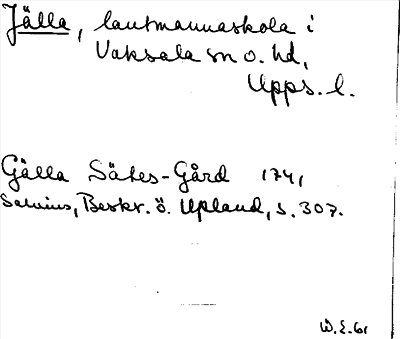 Jälla, lantmannaskola i
Vaksala sn o. hd,
Upps. l.
Gälla Sätes-Gård 1741
Salvius, Beskr. ö. Upland, s. 307.
W.E. 61